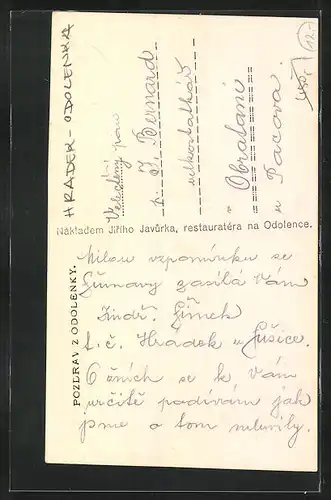 HRADEK - ODOLENKA
12.-
450,-
Velectěný pan
p. J. Bernard
velkostatkář
v Obratani
u Pacova.
Nákladem Jiřího Javůrka, restauratéra na Odolence.
POZDRAV Z ODOLENKY.
Milou vzpomínku se
Šumavy zasílá Vám
Jindř. Šimek
t. č. Hradek u Sušice.
O žních se k Vám
určitě podívám jak
jsme o tom mluvily.